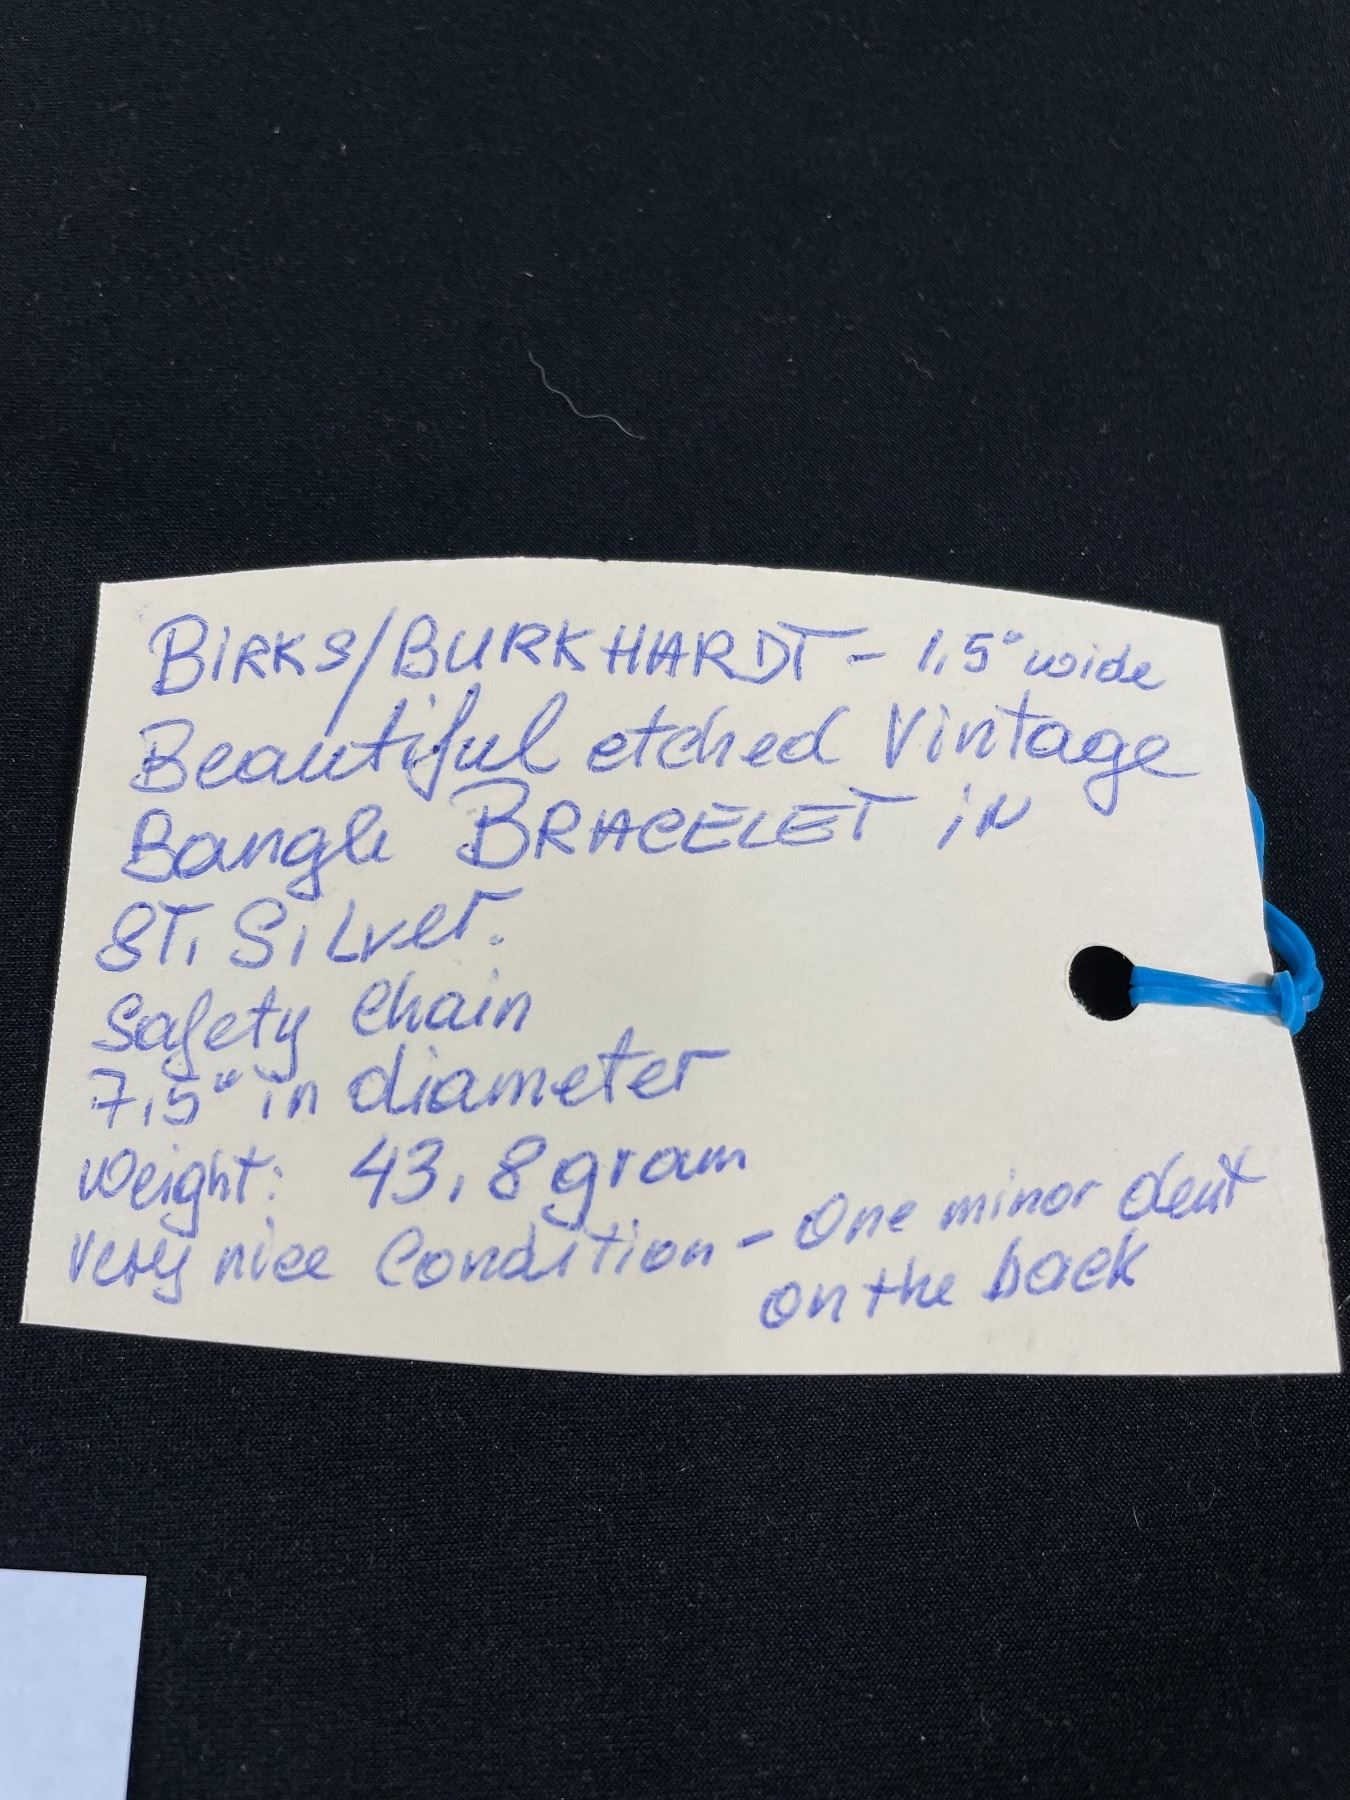 BIRKS/BURKHARDT - 1,5" wide
Beautiful etched Vintage
Bangle BRACELET iN
ST, SiLver.
Safety Chain
7,5" in diameter
Weight: 43,8 gram
Very nice Condition - One minor dent
on the back